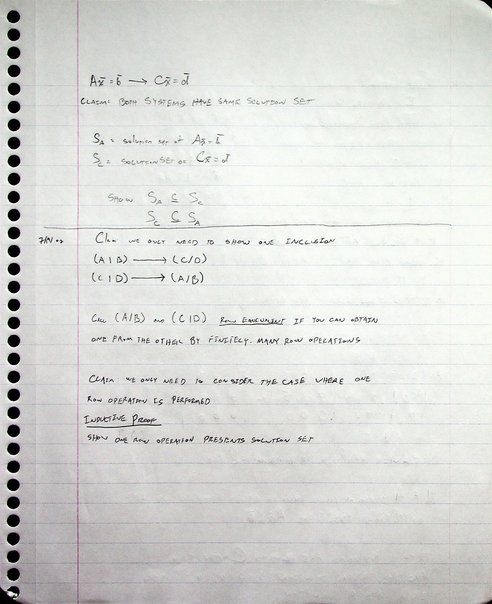 Ax̄ = b̄ → Cx̄ = d̄
CLAIM: BOTH SYSTEMS HAVE SAME SOLUTION SET
S_A = solution set of Ax̄ = b̄
S_C = SOLUTION SET OF Cx̄ = d̄
SHOW S_A ⊆ S_C
S_C ⊆ S_A
CLAIM WE ONLY NEED TO SHOW ONE INCLUSION
(A|B) → (C/D)
(C|D) → (A/B)
CALL (A/B) AND (C|D) ROW EQUIVALENT IF YOU CAN OBTAIN
ONE FROM THE OTHER BY FINITELY MANY ROW OPERATIONS
CLAIM WE ONLY NEED TO CONSIDER THE CASE WHERE ONE
ROW OPERATION IS PERFORMED
INDUCTIVE PROOF
SHOW ONE ROW OPERATION PRESENTS SOLUTION SET